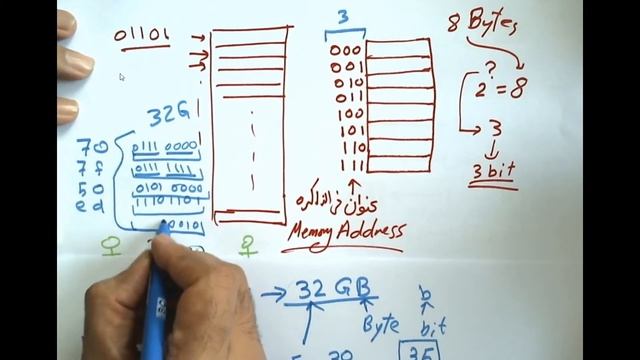 01101
3
8 Bytes
000
001
010
011
100
101
110
111
?
2 = 8
3
3 bit
32G
70 0111 0000
7f 0111 1111
50 0101 0000
ed 11101101
0010
عنوان في الذاكره
Memory Address
32 GB
Byte
b
bit
35